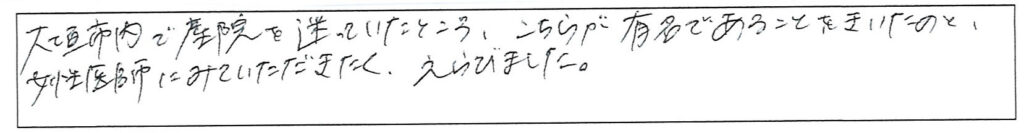 大垣市内で産院を迷っていたところ、こちらが有名であることをきいたのと、
女性医師にみていただきたく、えらびました。